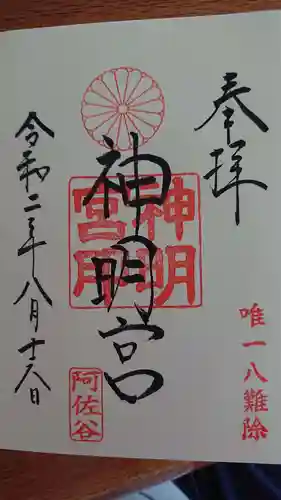 奉拝
唯一八難除
神明宮
神明宮
阿佐谷
令和二年八月十六日